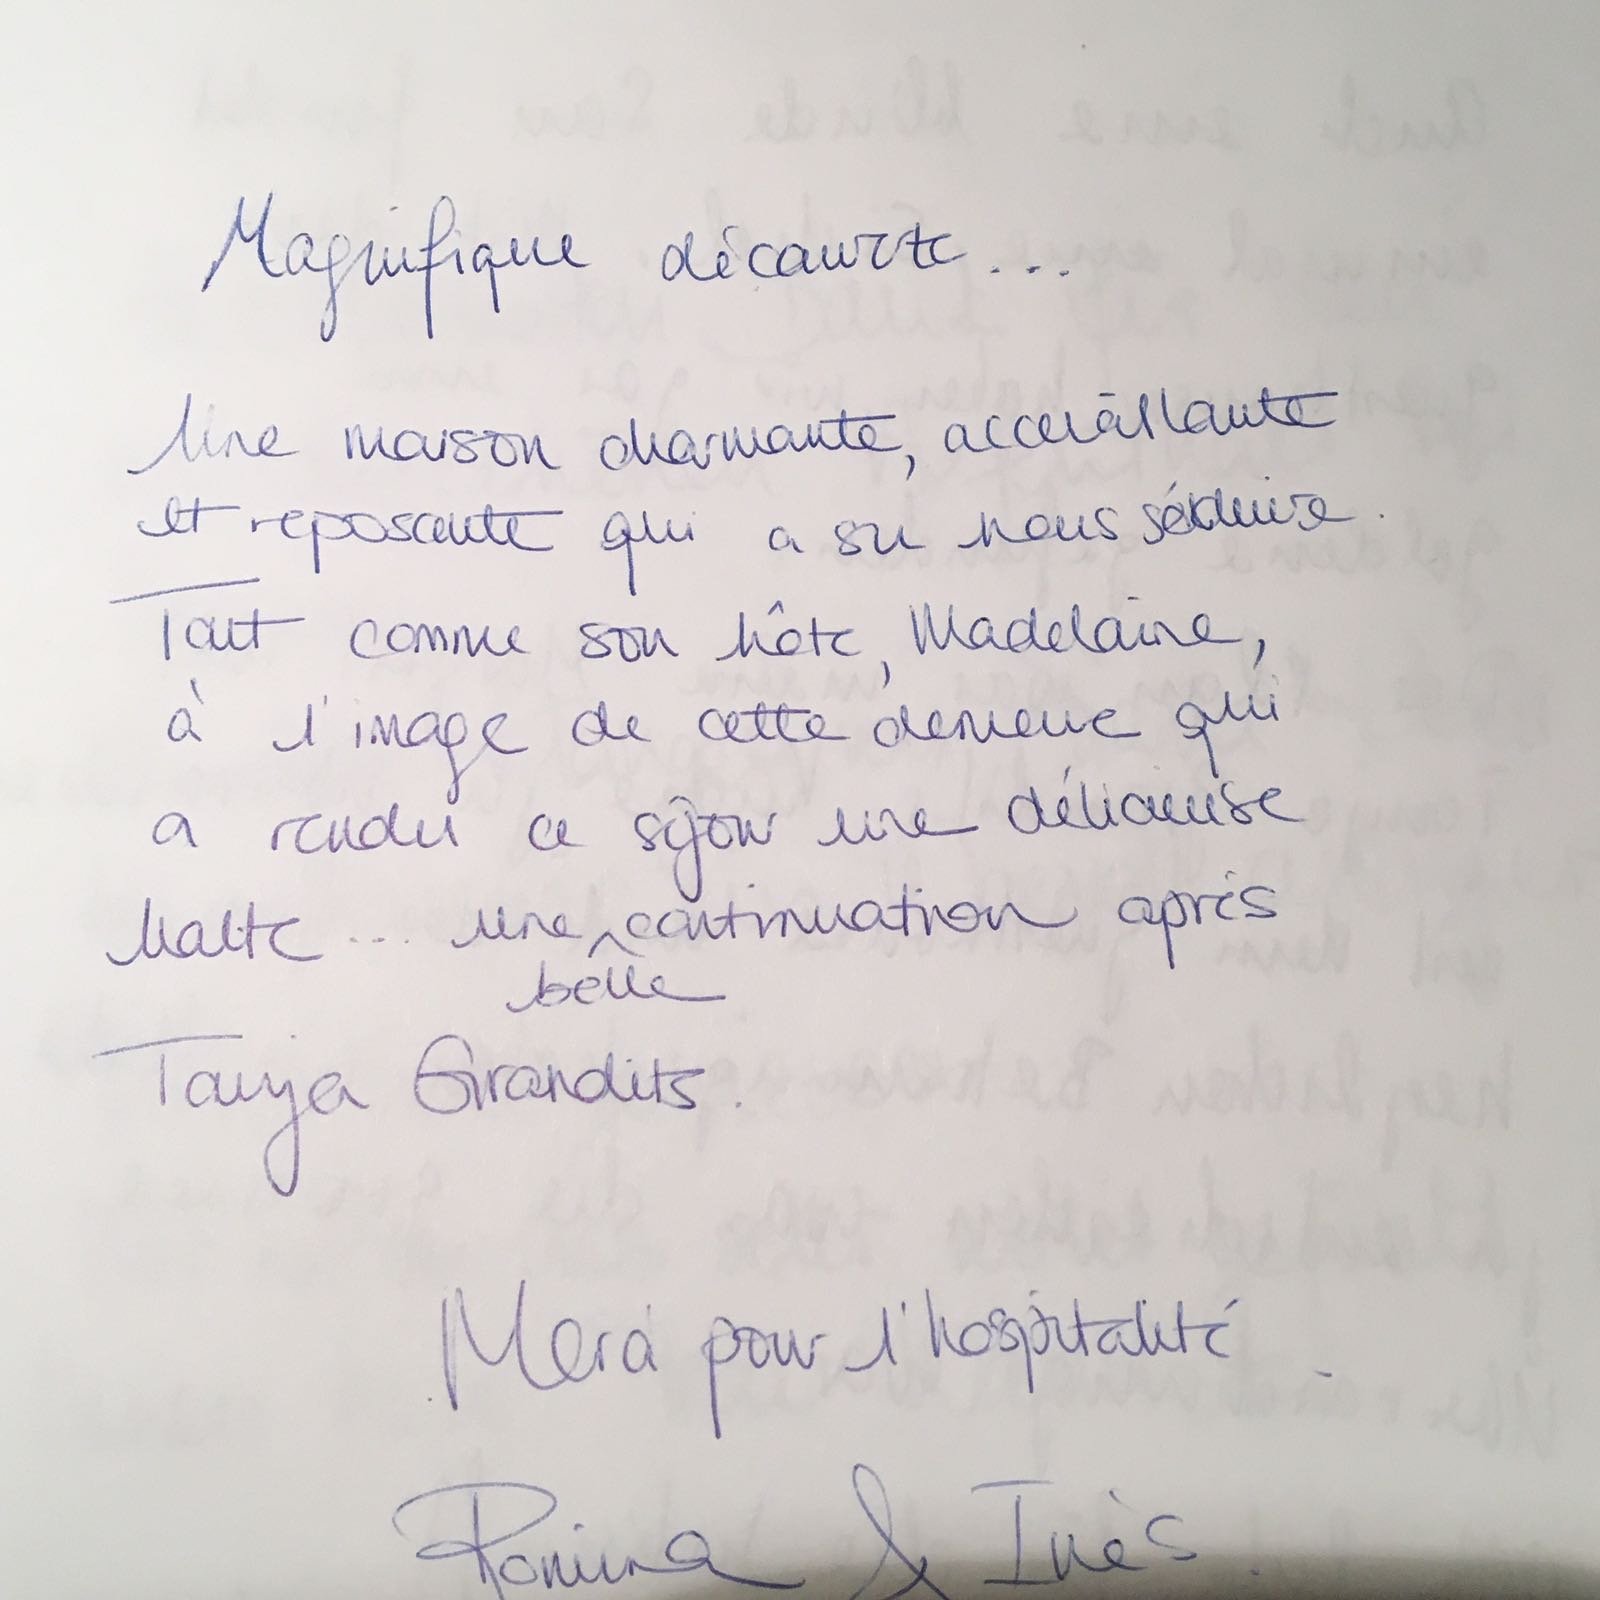 Magnifique découverte...
Une maison charmante, accueillante
et reposante qui a su nous séduire.
Tout comme son hôte, Madelaine,
à l'image de cette demeure qui
a rendu ce séjour une délicieuse
halte... une belle continuation après
Tanja Grandits.
Merci pour l'hospitalité.
Romina & Inès.